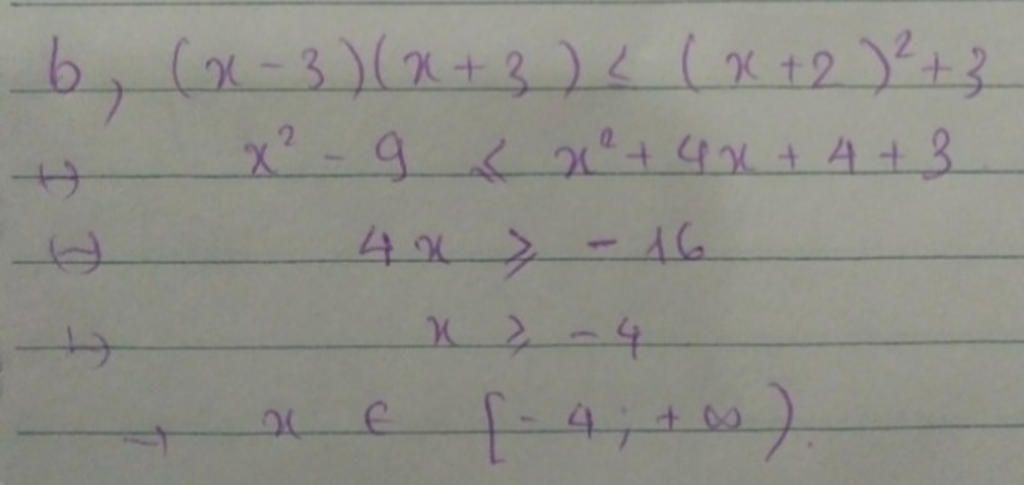 b, (x - 3)(x + 3) ≤ (x + 2)² + 3
↔ x² - 9 ≤ x² + 4x + 4 + 3
↔ 4x ≥ - 16
↔ x ≥ - 4
→ x ∈ [- 4; + ∞).